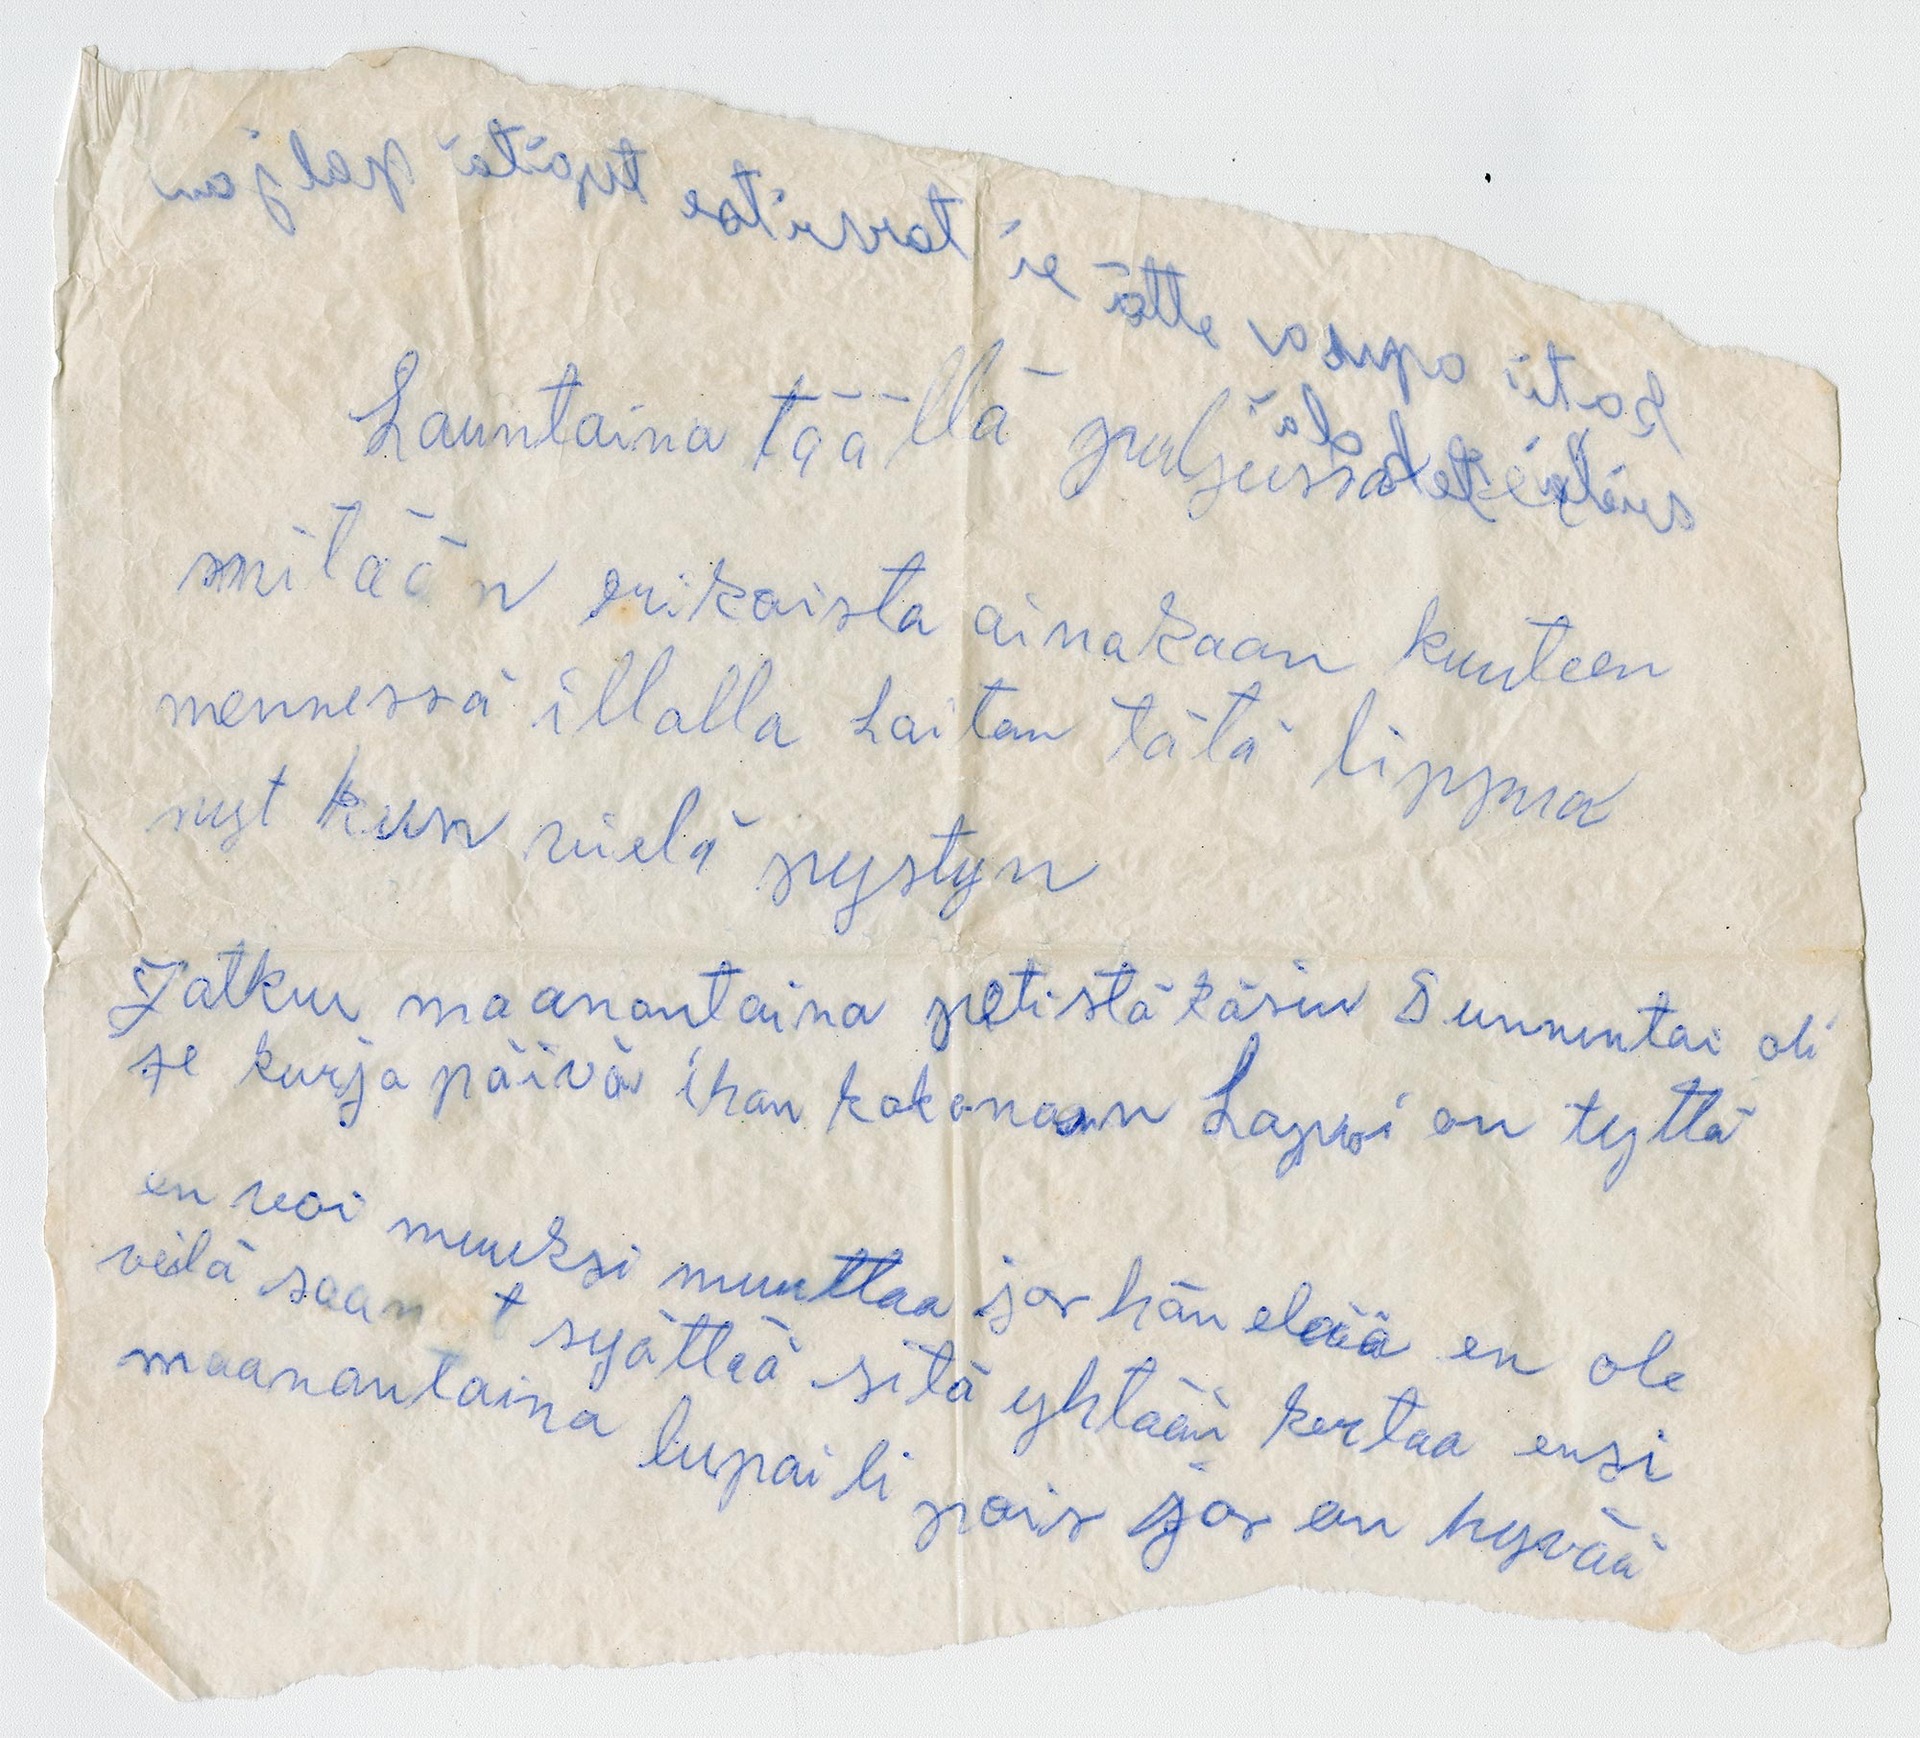 koti apua että ei tarvitse työtä paljon
Launtaina täällä
mitään erikoista ainakaan kuuteen
mennessä illalla Laitan tätä lippua
nyt kun vielä pystyn
Jatkuu maanantaina petistä käsin Sunnuntai oli
se kurja päivä ihan kokonaan Lapsi on tyttö
en voi muuksi muuttaa jos hän elää en ole
veilä saan t syättää sitä yhtään kertaa ensi
maanantaina lupaili pois jos on hyvää